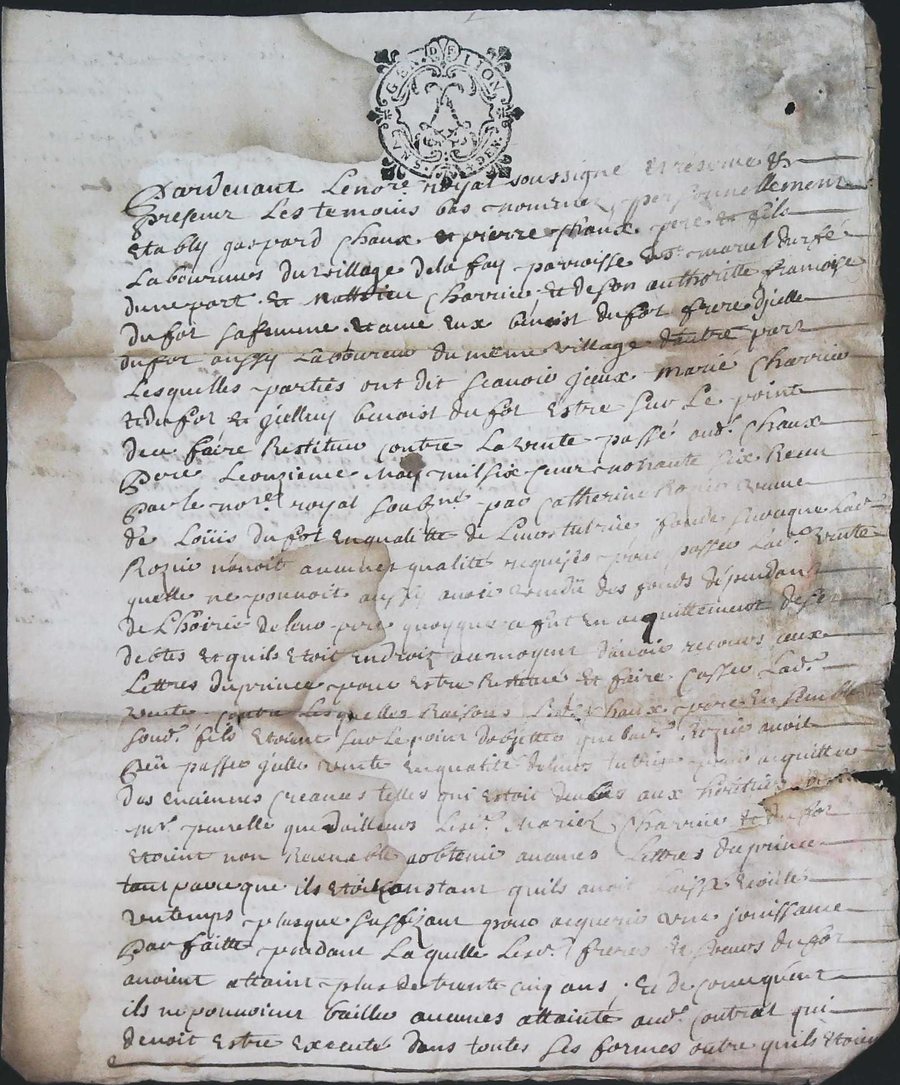 GEN. DE LION
Pardevant Lenore. royal soussigne et
presence Les temoins bas nommez, personnellement
Etably gaspard Chaux et pierre Chaux pere et fils
Laboureurs du village de la fay parroisse de st. marcel durfé
dune part. Et Mathieu Charrin Et de son authorité francoise
du for sa femme. Et avec Eux benoist du for frere djcelle
du for aussy Laboureur du même village d'autre part
Lesquelles parties ont dit scauoir jceux marié Charrin
Et du for Et jcelluy benoist du for Estre sur Le point
de se faire Restituer contre La vente passé aud. Chaux
Pere Leonzieme may mil six cent nonante six Receu
Par le nore. royal soubne. par Catherine Rozier veuve
de Loüis du for En qualité de
Rozier n'auoit aucunes qualité requises pour passer Lad. vente
quelle ne pouuoit aussy auoir vendu des fonds dépendant
de L'hoirie de leur pere quoyque ce fut En acquittement de ses
debtes Et quils Etoit En droit au moyent dauoir recours aux
Lettres du prince pour Estre Restitué Et faire Casser Lad.
vente Contre Lesquelles Raisons Led. Chaux pere Ensemble
sond. fils Etoient sur Le point dobjetter que Lad. Rozier auoit
peü passer jcelle vente En qualité de pour acquitter
des enciennes Creances telles qui Estoit deües aux heritiers
mr. que dailleurs Lesd. Mariez Charrin Et du for
Etoient non Receuable a obtenir aucunes Lettres du prince
tant parce que ils Etoit Constant quils auoit Laissé Ecoulé
vn temps plus que suffizant pour acquerir vne jouissance
Parfaitte pendant Laquelle Lesd. freres Et soeurs du for
auoient attaint plus de trente cinq ans. Et de consequent
ils ne pouuoient bailler aucunes attainte aud. contrat qui
deuoit Estre Execute dans toutes ses formes outre quils Etoient